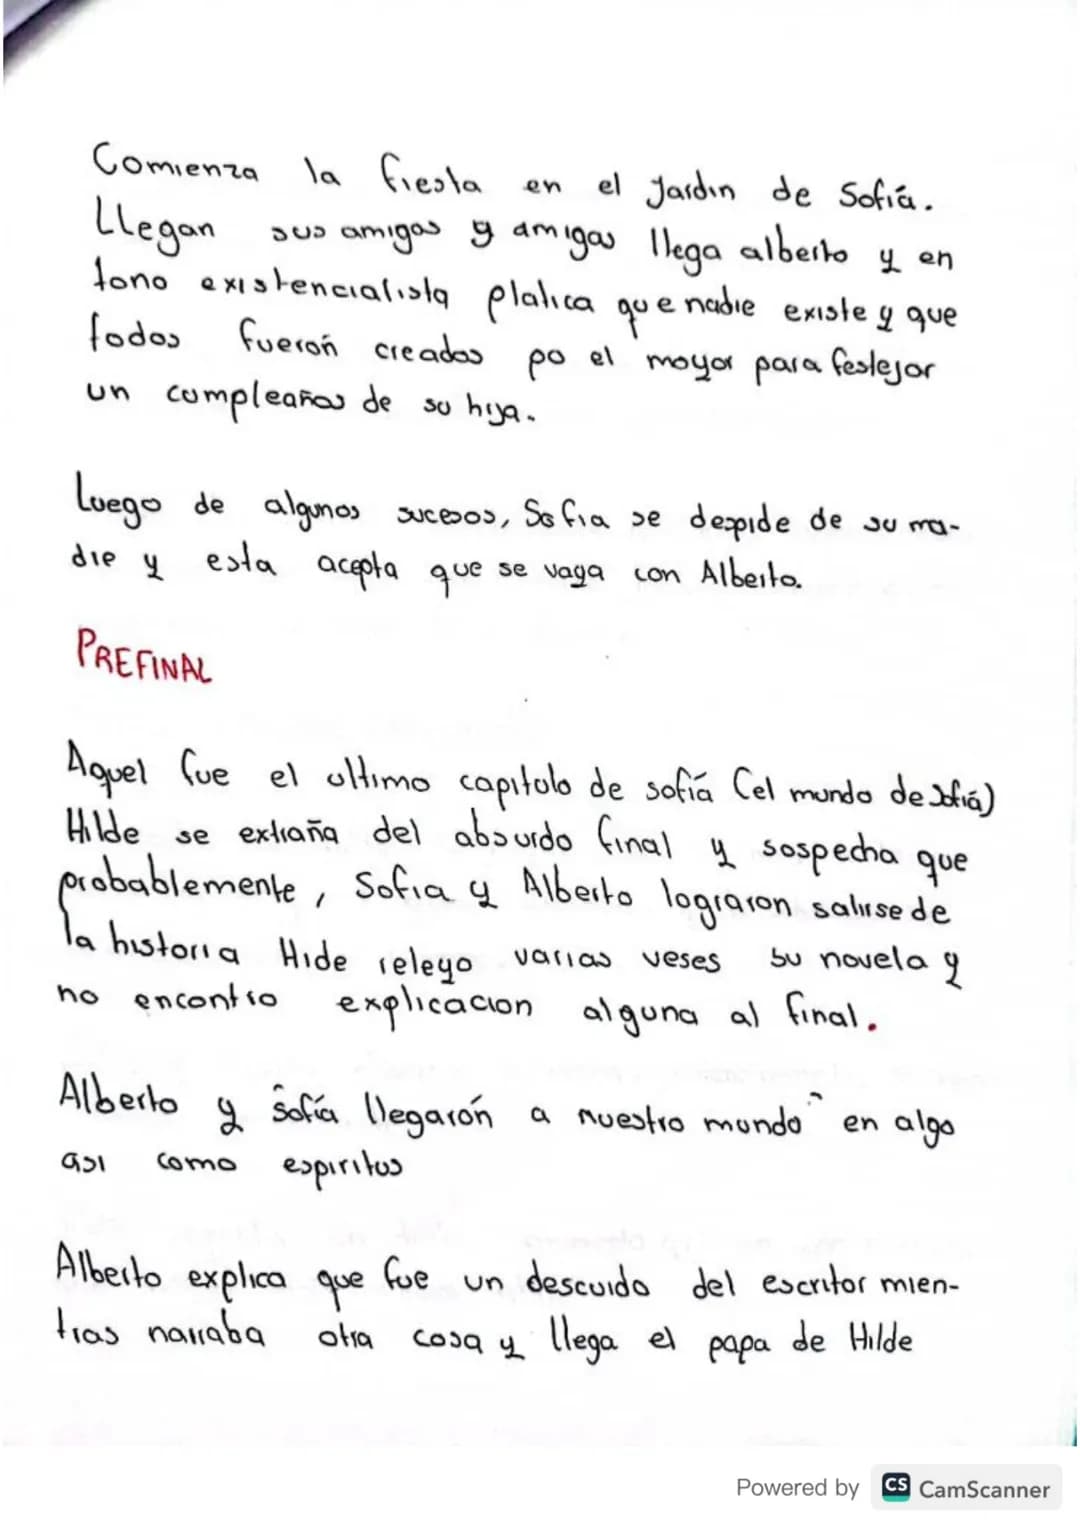 Comienza la fiesta en el Jardin de Sofiá.
LLegan sus amigos y amigas llega alberto y en
tono existencialista platica que nadie existe y que
todos fuerón creados po el mayor para festejar
un cumpleaños de su hija.
Luego de algunos sucesos, Sofia se despide de su ma-
dre y esta acepta que se vaya con Alberto.
PREFINAL
Aquel fue el ultimo capitulo de sofiá (el mundo de Sofiá)
Hilde se extraña del absurdo final y sospecha que
probablemente, Sofia y Alberto lograron salirse de
la historia Hide releyo varias veses su novela y
no encontro explicacion alguna al final.
Alberto y Sofía llegarón a nuestro mundo" en algo
asi como espiritus
Alberto explica que fue un descuido del escritor mien-
tras narraba otra cosa y llega el papa de Hilde
Powered by CS CamScanner